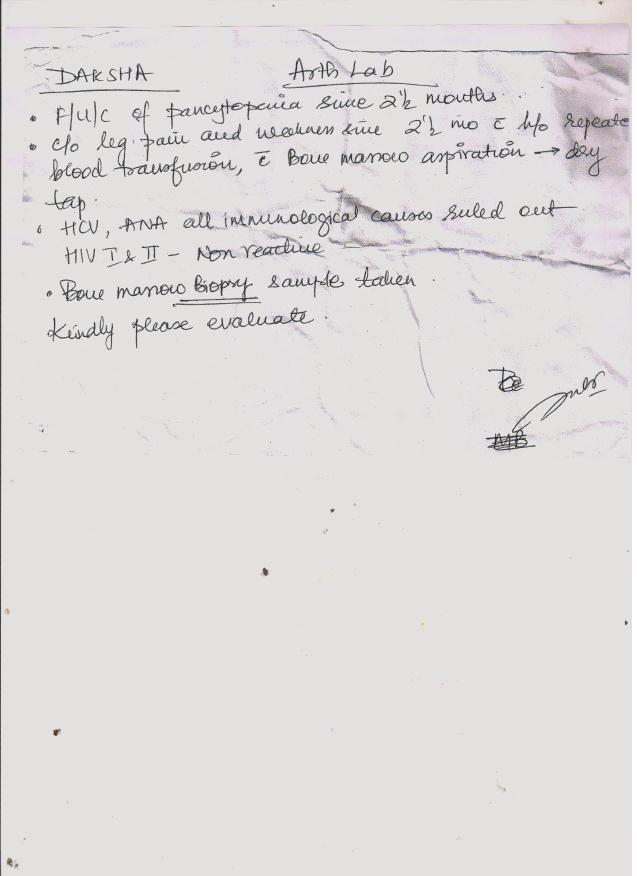 DAKSHA Arth Lab
• F/U/C of pancytopenia since 2½ months.
• c/o leg pain and weakness since 2½ mo c̄ h/o repeate
blood transfusion, c̄ Bone marrow aspiration → dry
tap.
• HCV, ANA all immunological causes ruled out
HIV I & II - Non reactive
• Bone marrow Biopsy sample taken.
Kindly please evaluate.